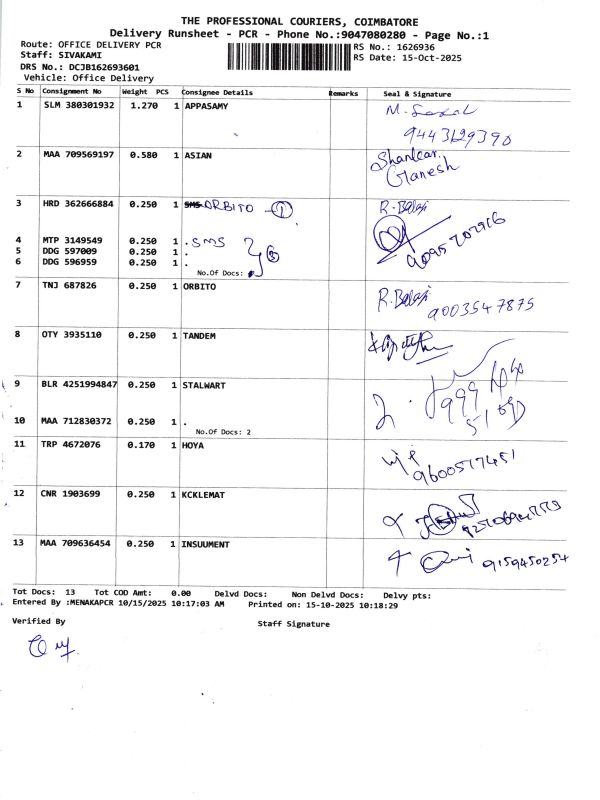 THE PROFESSIONAL COURIERS, COIMBATORE
Delivery Runsheet - PCR - Phone No.:9047080280 - Page No.:1
Route: OFFICE DELIVERY PCR RS No.: 1626936
Staff: SIVAKAMI RS Date: 15-Oct-2025
DRS No.: DCJB162693601
Vehicle: Office Delivery
S No Consignment No Weight PCS Consignee Details Remarks Seal & Signature
1 SLM 380301932 1.270 1 APPASAMY
9443129390
2 MAA 709569197 0.580 1 ASIAN Shankar.
Ganesh
3 HRD 362666884 0.250 1 SMS ORBITO - 1 R. Balaji
4 MTP 3149549 0.250 1 . SMS
5 DDG 597009 0.250 1 .
6 DDG 596959 0.250 1 .
No.Of Docs:
7 TNJ 687826 0.250 1 ORBITO R. Balaji
9003547875
8 OTY 3935110 0.250 1 TANDEM
9 BLR 4251994847 0.250 1 STALWART
10 MAA 712830372 0.250 1 .
No.Of Docs: 2
11 TRP 4672076 0.170 1 HOYA
9600577451
12 CNR 1903699 0.250 1 KCKLEMAT
13 MAA 709636454 0.250 1 INSUUMENT
9159450254
Tot Docs: 13 Tot COD Amt: 0.00 Delvd Docs: Non Delvd Docs: Delvy pts:
Entered By :MENAKAPCR 10/15/2025 10:17:03 AM Printed on: 15-10-2025 10:18:29
Verified By Staff Signature